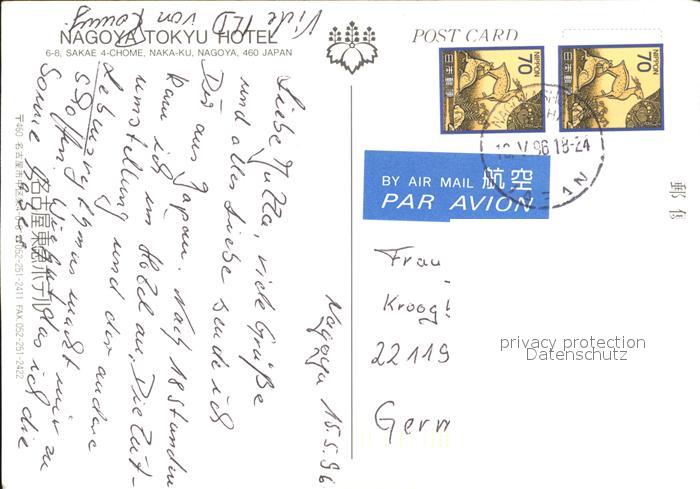 NAGOYA TOKYU HOTEL
6-8, SAKAE 4-CHOME, NAKA-KU, NAGOYA, 460 JAPAN
POST CARD
NIPPON
70
日本郵便
NIPPON
70
日本郵便
NAGOYA
18-24
JAPAN
BY AIR MAIL 航空
PAR AVION
郵
Frau
22119
Germ
privacy protection
Datenschutz
Nagoya 15.5.96
Liebe Jutta, viele Grüße
und alles Liebe sende ich
Dir aus Japan. Nach 18 Stunden
kam ich im Hotel an. Die Zeit-
umstellung und der andere
Lebensrythmus macht mir zu
schaffen.
Sonne
von
名古屋東急ホテル
〒460 名古屋市中区栄4-6-8 ☎052-251-2411 FAX.052-251-2422